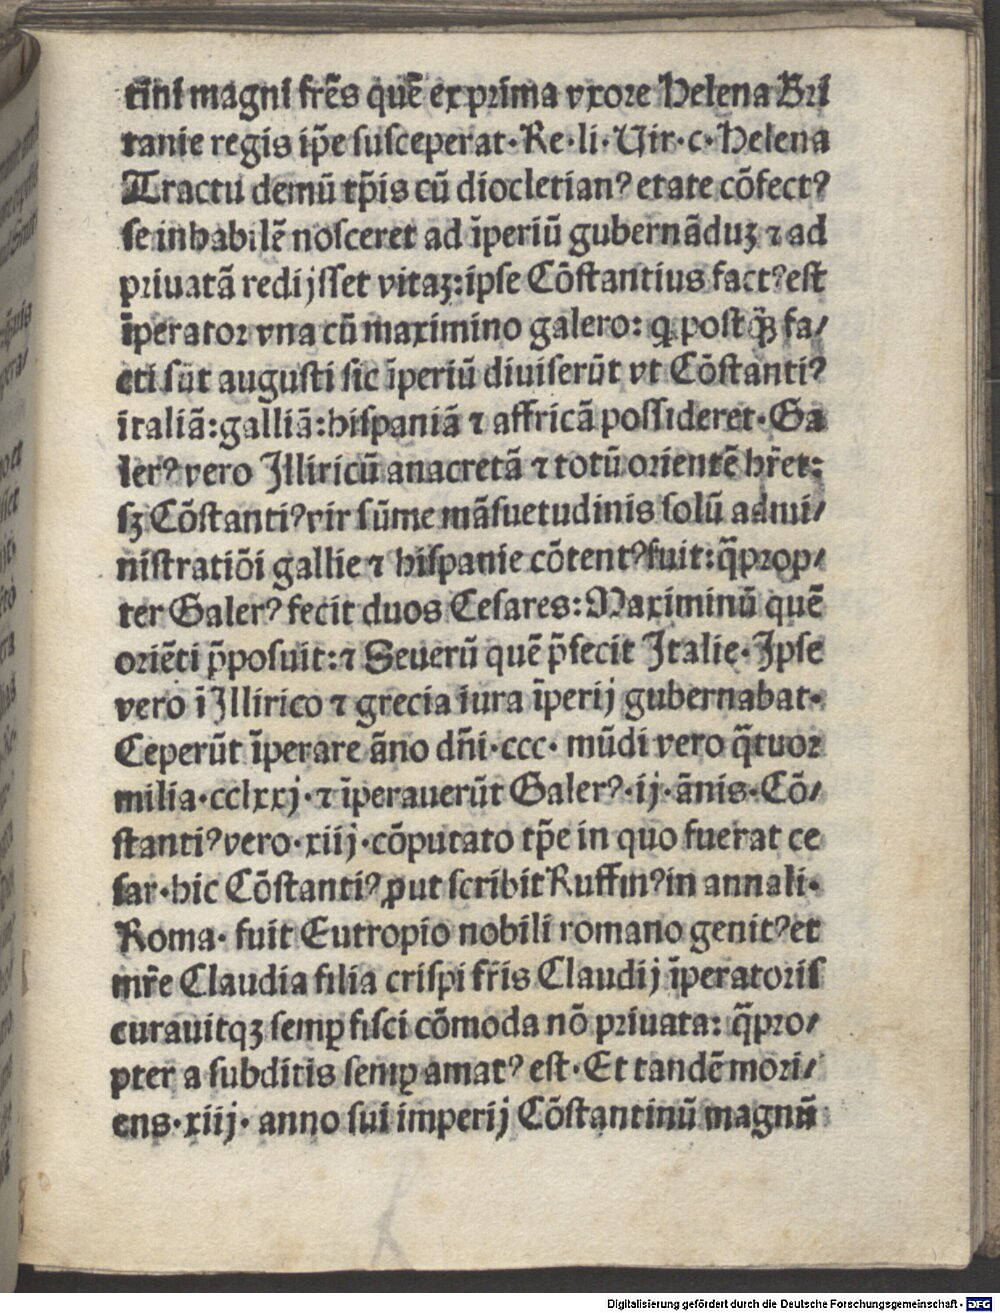 tini magni fr̃es quẽ ex prima vxore Helena Bri
tanie regis ip̃e susceperat·Re·li·Uir·c·Helena
Tractu demũ tp̃is cũ diocletianꝰ etate cõfectꝰ
se inhabilẽ nosceret ad ĩperiũ gubernãduꝫ ⁊ ad
priuatã redijsset vitaꝫ:ipse Cõstantius factꝰest
ĩperator vna cũ maximino galero: ꝙ post ꝙ̃ fa/
cti sũt augusti sic ĩperiũ diuiserũt vt Cõstantiꝰ
italiã:galliã:hispaniã ⁊ affricã possideret·Ga
lerꝰ vero Illiricũ anacretã ⁊ totũ orientẽ hr̃et:
sꝫ Cõstantiꝰvir sũme mãsuetudinis solũ admi/
nistratiõi gallie ⁊ hispanie cõtentꝰfuit:q̃prop/
ter Galerꝰ fecit duos Cesares:Maximinũ quẽ
oriẽti p̃posuit:⁊ Seuerũ quẽ p̃fecit Italie·Ipse
vero ĩ Illirico ⁊ grecia iura ĩperij gubernabat·
Ceperũt ĩperare ãno dñi·ccc· mũdi vero q̃tuor
milia·cclxxj·⁊ ĩperauerũt Galerꝰ·ij·ãnis·Cõ/
stantiꝰvero·xiij·cõputato tp̃e in quo fuerat ce
sar·hic Cõstantiꝰ ꝓut scribit Ruffinꝰin annali·
Roma· fuit Eutropio nobili romano genitꝰet
mr̃e Claudia filia crispi fr̃is Claudij ĩperatoris
curauitqꝫ semꝑ fisci cõmoda nõ priuata: q̃pro/
pter a subditis semꝑ amatꝰ est·Et tandẽ mori/
ens·xiij· anno sui imperij Cõstantinũ magnũ
Digitalisierung gefördert durch die Deutsche Forschungsgemeinschaft - DFG